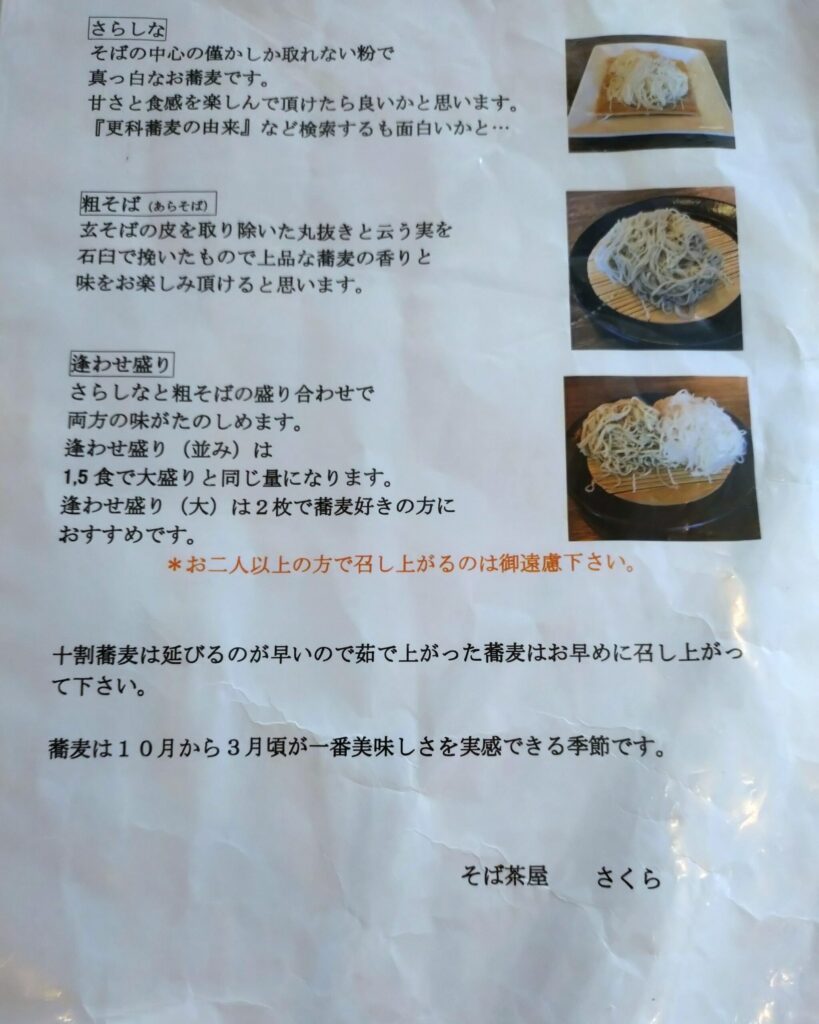 さらしな
そばの中心の僅かしか取れない粉で
真っ白なお蕎麦です。
甘さと食感を楽しんで頂けたら良いかと思います。
『更科蕎麦の由来』など検索するも面白いかと…
粗そば（あらそば）
玄そばの皮を取り除いた丸抜きと云う実を
石臼で挽いたもので上品な蕎麦の香りと
味をお楽しみ頂けると思います。
逢わせ盛り
さらしなと粗そばの盛り合わせで
両方の味がたのしめます。
逢わせ盛り（並み）は
1,5 食で大盛りと同じ量になります。
逢わせ盛り（大）は２枚で蕎麦好きの方に
おすすめです。
＊お二人以上の方で召し上がるのは御遠慮下さい。
十割蕎麦は延びるのが早いので茹で上がった蕎麦はお早めに召し上がっ
て下さい。
蕎麦は１０月から３月頃が一番美味しさを実感できる季節です。
そば茶屋　さくら